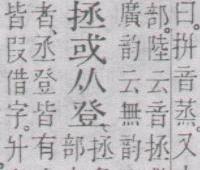 曰。拼音蒸。又
部。陸云音拯
廣韵云無韵
拯或从登、拯
部
者、丞登皆有
皆叚借字。廾